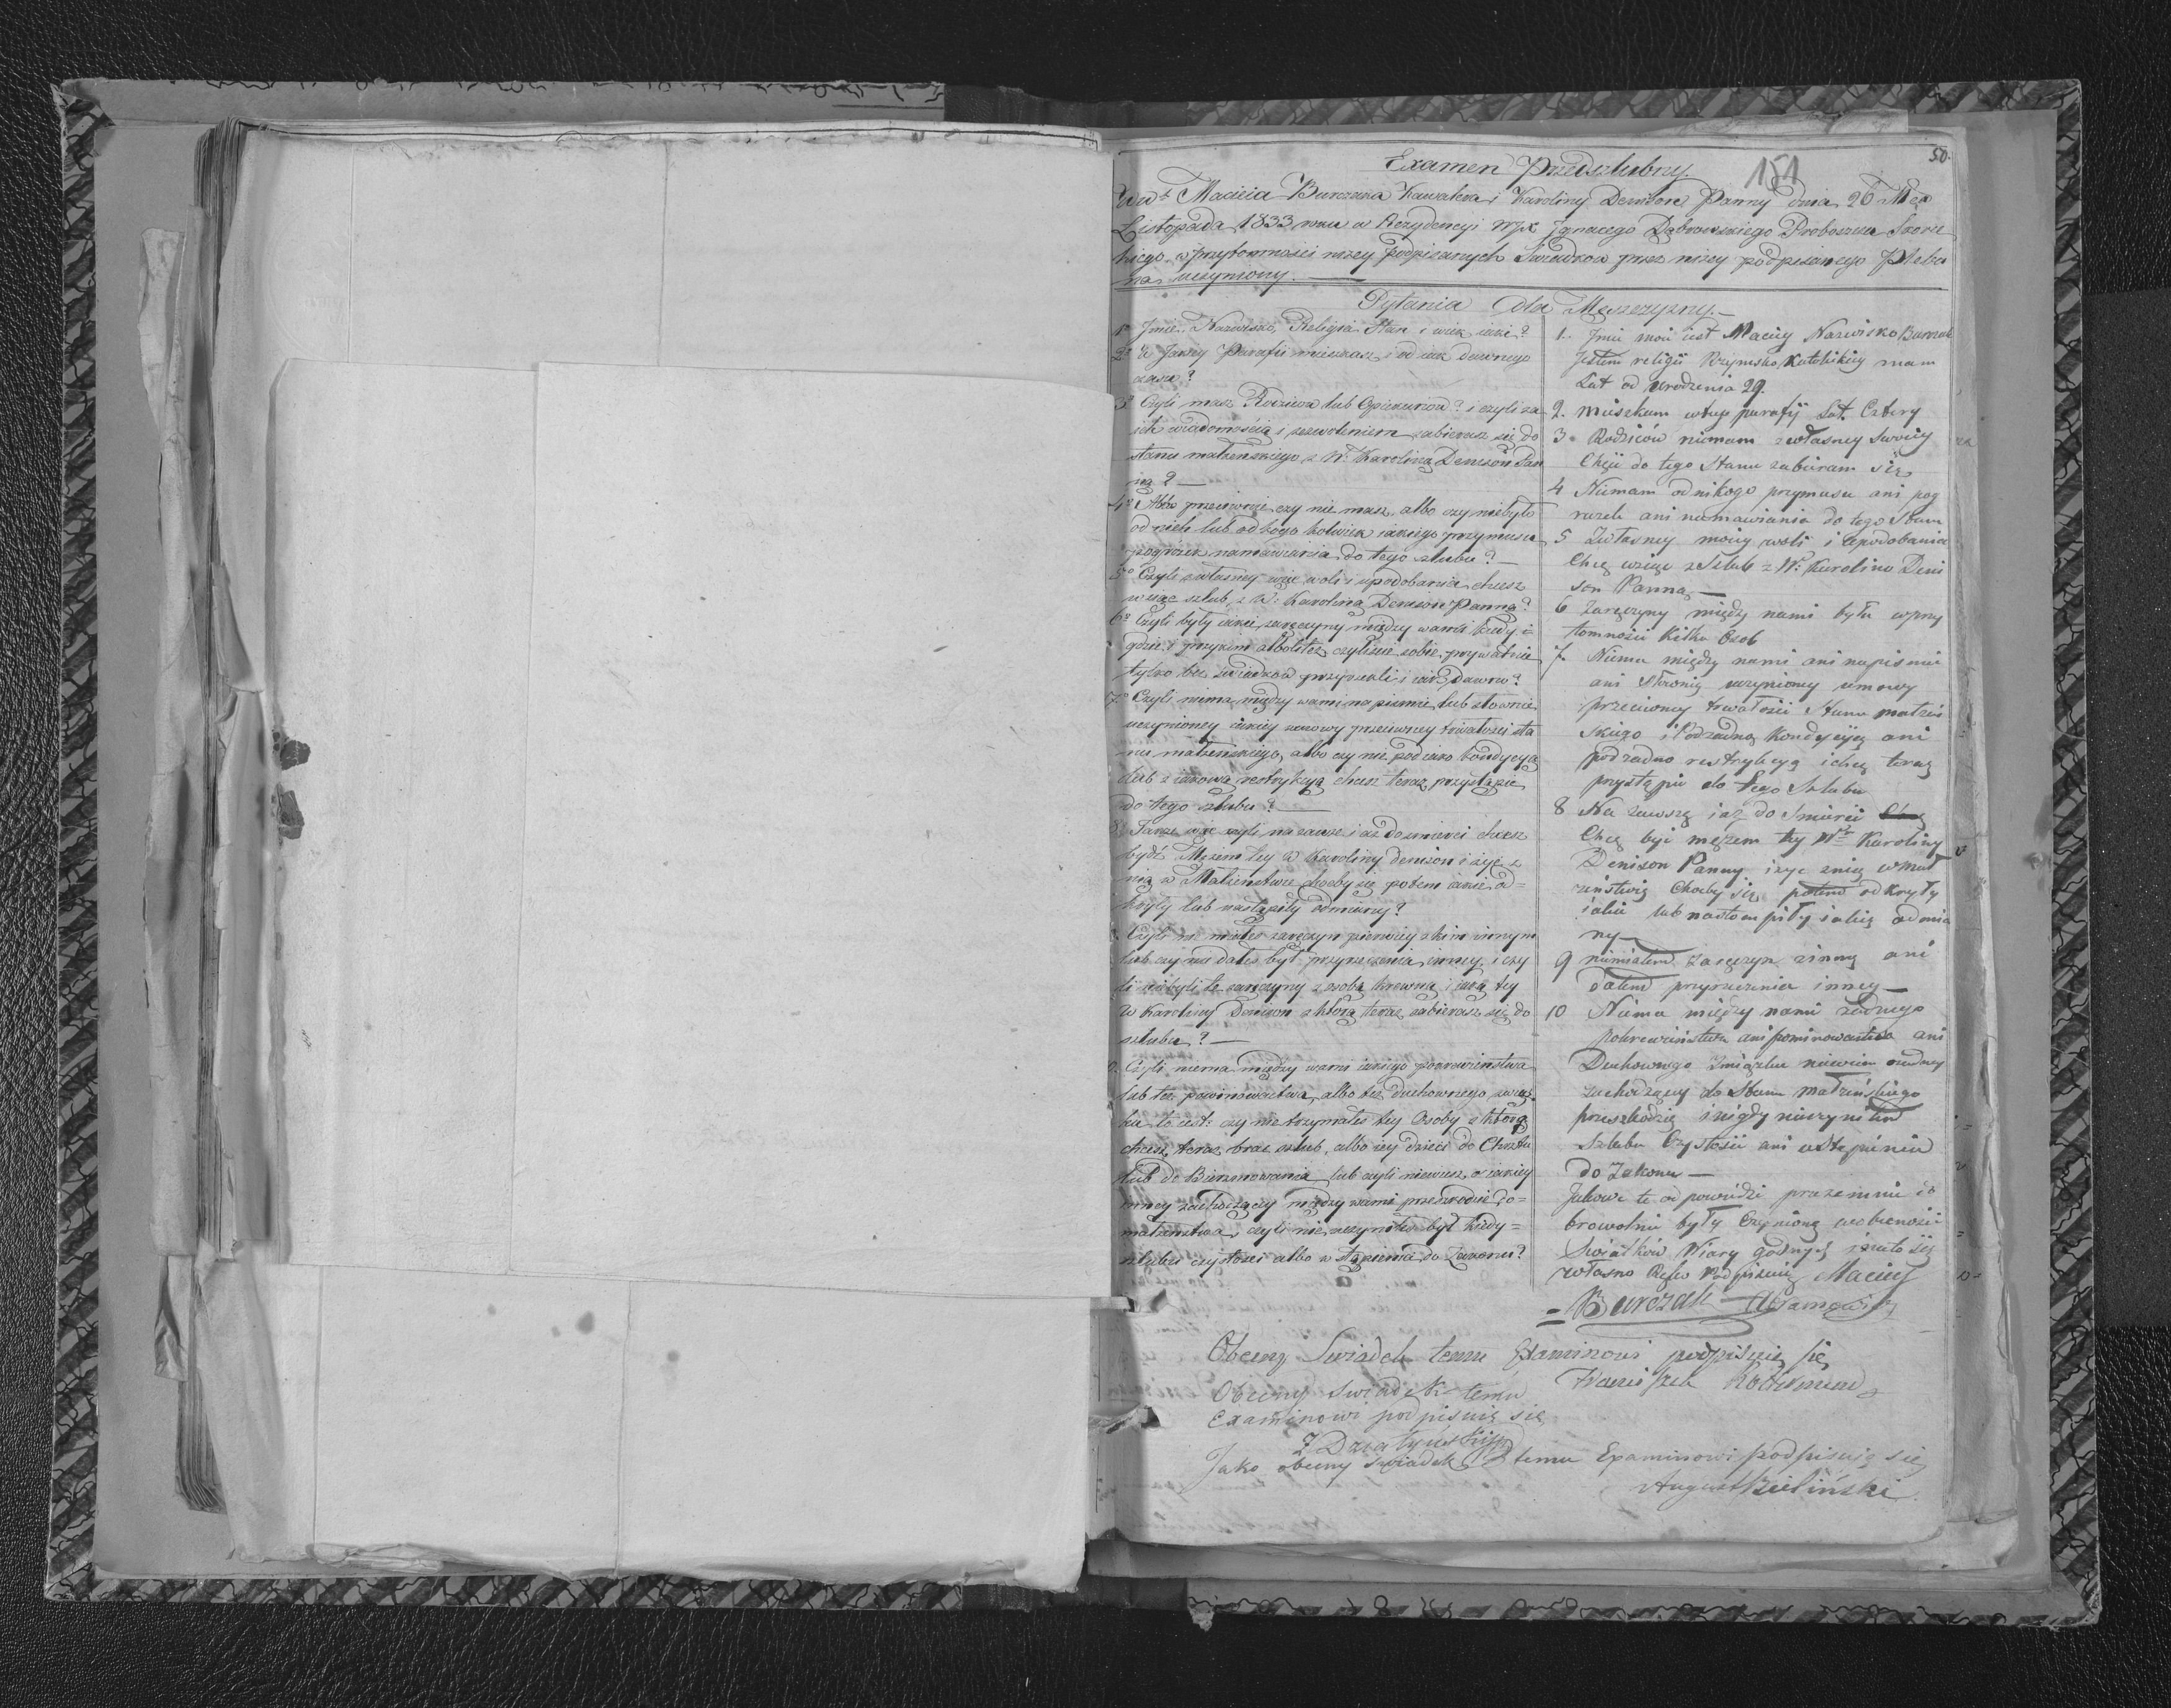 50.
151
Examen Przedślubny.
Macieia Burczaka Kawalera i Karoliny Denison Panny dnia 26 Mca
Listopada 1833 roku w Rezydencyi Ignacego Dąbrowskiego Proboszcza
w przytomności niżey podpisanych Świadków przez niżey podpisanego Pleba
na uczyniony.
Pytania dla Męszczyzny.
1o Jmie, Nazwisko, Religia Stan i wiek iaki?
2o W Jakiey Parafii mieszkasz i od iak dawnego
czasu?
3o Czyli masz Rodziców lub Opiekunów? i czyli za
ich wiadomością i zezwoleniem zabierasz się do
stanu małżenskiego z W. Karoliną Denison Pan
ną?
4o Albo przeciwnie czy nie masz, albo czy niebyło
od nich lub od kogo kolwiek iakiego przymusu
pogróżek namawiania do tego ślubu?
5o Czyli z własney więc woli i upodobania chcesz
wziąć szlub z W. Karoliną Denison Panną?
6o Czyli były iakie zaręczyny między wami kiedy i
gdzie i przykim albo też czyliście sobie prywatnie
tylko bez świadków przyrzekli i iak dawno?
7o Czyli niema między wami na piśmie lub słownie
uczynioney iakiey umowy przeciwney trwałości sta
nu małżenskiego, albo czy nie pod iaką kondycyą
lub z iakową restrykcyą chcesz teraz przystąpić
do tego szlubu?
8o Zatem więc czyli na zawsze i aż do smierci chcesz
bydź Mężem tey W Karoliny Denison i żyć z
nią w Małżenstwie choćby się potem iakie od=
kryły lub nastąpiły odmiany?
Czyli nie miałeś zaręczyn pierwiey z kim innym
lub czy nie dałeś był przyrzeczenia inney, i czy
li niebyli te zaręczyny z osobą krewną iaką tey
W Karoliny Denison z którą teraz zabierasz się do
szlubu?
Czyli niema między wami iakiego pokrewieństwa
lub też powinowactwa, albo też duchownego związ
ku to iest: czy nie trzymałeś tey Osoby z którą
chcesz teraz brać szlub, albo iey dzieci do Chrztu
lub do Bierzmowania lub czyli niewiesz o iakiey
inney zachodzącey między wami przeszkodzie do=
małżenstwa, czyli nie uczyniłeś był kiedy=
szlubu czystości albo wstąpienia do Zakonu?
1. Jmie moie iest Maciey Nazwisko Burczak
Jestem religii Rzymsko Katolickiey mam
Lat od urodzenia 29.
2. Mieszkam w tey parafii Lat Cztery
3. Rodziców niemam z własney swoiey
Chęci do tego Stanu zabieram się
4 Niemam od nikogo przymusu ani pog
rużek ani namawiania do tego Stanu
5 Zwłasney moiey woli i upodobania
Chcę wziąć szlub z W. Karolino Deni
son Panną
6 Zaręczyny między nami były w przy
tomności kilku Osob
7. Niema między nami ani napismie
ani słownie uczynioney umowy
przeciwney trwałości Stanu małżeń
skiego i Podżadną Kondycyią ani
podżadno restrykcyą i chcę teraz
przystąpić do tego Szlubu
8 Na zawszę iaż do Smierci
Chcę być mężem tey W Karoliny
Denison Panny i żyć znią w mał
żeństwie Choćby się potem odkryły
iakie lub nastompiły iakie odmia
ny
9 niemiałem zaręczyn z inną ani
Dałem przyrzeczenia inney
10 Niema między nami żadnego
pokrewieństwa ani powinowactwa ani
Duchownego Związku niewiem o żadney
zachodzącey do Stanu małżeńskiego
przeszkodzie i nigdy nieczyniłem
Szlubu Czystości ani wstąpienia
do Zakonu
Jakowe te odpowiedzi przezemnie do
browolnie były Czynione w obecności
Świadków Wiary godnych i na to się
własno Ręko Podpisuię Maciey
= Burczak
Obecny Swiadek temu Examinowi podpisuię się
Obecny Swiadek temu
Examinowi podpisuię się
Działyński
Jako obecny Swiadek temu Examinowi podpisuię się
August Bieliński